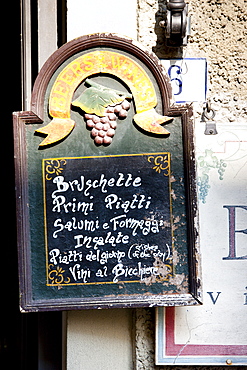 6
Bruschette
Primi Piatti
Salumi e Formaggi
Insalate
Piatti del giorno
Vini al Bicchiere